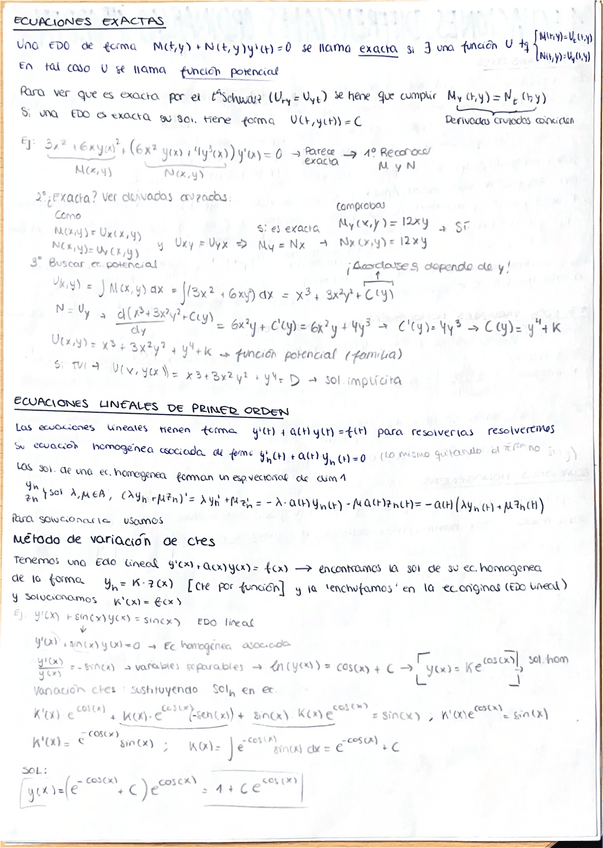 ECUACIONES EXACTAS
Una EDO de forma M(t,y) + N(t,y)y'(t)=0 se llama exacta si ∃ una función U tq { M(t,y)=U_t(t,y)
N(t,y)=U_y(t,y)
En tal caso U se llama función potencial
Para ver que es exacta por el tª Schwarz (U_ty = U_yt) se tiene que cumplir M_y(t,y) = N_t(t,y)
Si una EDO es exacta su sol. tiene forma U(t,y(t)) = C
Derivadas cruzadas coinciden
Ej: 3x² + 6xy(x)² + (6x² y(x) + 4y³(x)) y'(x) = 0 → Parece exacta → 1º Reconocer M y N
M(x,y) N(x,y)
2º ¿exacta? Ver derivadas cruzadas:
Como comprobas
M(x,y) = U_x(x,y)
N(x,y) = U_y(x,y) y U_xy = U_yx ⇒ M_y = N_x
si es exacta → M_y(x,y) = 12xy
N_x(x,y) = 12xy → Sí
3º Buscar ec potencial
¡Acordarse, depende de y!
U(x,y) = ∫ M(x,y) dx = ∫(3x² + 6xy²) dx = x³ + 3x²y² + C(y)
N = U_y → d(x³+3x²y²+C(y))/dy = 6x²y + C'(y) = 6x²y + 4y³ → C'(y) = 4y³ → C(y) = y⁴ + K
U(x,y) = x³ + 3x²y² + y⁴ + K → función potencial (familia)
Si → U(x, y(x)) = x³ + 3x²y² + y⁴ = D → sol implícita
ECUACIONES LINEALES DE PRIMER ORDEN
Las ecuaciones lineales tienen forma y'(t) + a(t) y(t) = f(t) para resolverlas resolveremos
su ecuación homogénea asociada de forma y'_h(t) + a(t) y_h(t) = 0 (lo mismo quitando el término )
Las sol. de una ec. homogenea forman un esp vectorial de dim 1
y_h, z_h sol λ, μ∈ℝ, (λy_h + μz_h)' = λy_h' + μz_h' = -λ·a(t) y_h(t) - μa(t) z_h(t) = -a(t)(λy_h(t) + μz_h(t))
Para solucionarla usamos
Método de variación de ctes
Tenemos una Edo lineal y'(x) + a(x)y(x) = f(x) → encontramos la sol de su ec. homogenea
de la forma y_h = K·z(x) [Cte por función] y la 'enchufamos' en la ec originas (EDO lineal)
y solucionamos K'(x) = f(x)
Ej. y'(x) + sin(x) y(x) = sin(x) EDO lineal
y'(x) + sin(x) y(x) = 0 → Ec homogénea asociada
y'(x)/y(x) = -sin(x) → variables separables → ln(y(x)) = cos(x) + C → [y(x) = K e^cos(x)], sol. hom
Variación ctes: sustituyendo sol_h en ec.
K'(x) e^cos(x) + K(x)·e^cos(x) (-sen(x)) + sin(x) K(x) e^cos(x) = sin(x), K'(x) e^cos(x) = sin(x)
K'(x) = e^-cos(x) sin(x) ; K(x) = ∫ e^-cos(x) sin(x) dx = e^-cos(x) + C
SOL:
y(x) = (e^-cos(x) + C) e^cos(x) = 1 + C e^cos(x)